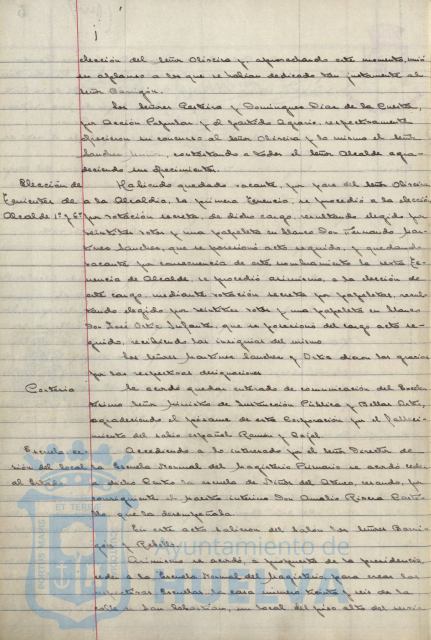 elección del Señor Oliveira y aprovechando este momento, unió
su aplauso a los que se habían dedicado tan justamente al
Señor Barrigón.
Los Señores Garteiro y Dominguez Diaz de la Cuesta,
por Acción Popular y el Partido Agrario, respectivamente
ofrecieron su concurso al Señor Oliveira y lo mismo el Señor
contestando a todos el Señor Alcalde agra-
deciendo su ofrecimiento.
Elección de
Tenientes de
Alcalde 1º y 6º
Habiendo quedado vacante, por pase del Señor Oliveira
a la Alcaldía, la primera Tenencia, se procedió a la elección
por votación secreta, de dicho cargo, resultando elegido por
veintitres votos y una papeleta en blanco Don Fernando Mar-
tinez Sanchez, que se posesionó acto seguido, y quedando
vacante por consecuencia de este nombramiento la sexta Te-
nencia de Alcalde, se procedió asimismo, a la elección de
este cargo, mediante votación secreta por papeletas, resul-
tando elegido por veintitres votos y una papeleta en blanco
Don José Ortiz Infante, que se posesionó del cargo acto se-
guido, recibiendo las insignias del mismo
Los Señores Martinez Sanchez y Ortiz dieron las gracias
por las respectivas designaciones
Se acordó quedar enterado de comunicación del Excelen-
tísimo Señor Ministro de Instrucción Pública y Bellas Artes,
agradeciendo el pésame de esta Corporación por el falleci-
miento del sabio español Ramón y Cajal
Escuela ce-
sión del local
al Estado
Accediendo a lo interesado por el Señor Director de
la Escuela Normal del Magisterio Primario se acordó ceder
a dicho Centro la escuela de Niños del Ateneo, cesando, por
consiguiente el Maestro interino Don Amalio Rivera Casti-
llo que la desempeñaba.
En este acto salieron del Salón los Señores Barri-
gón y Rebollo
Asimismo se acordó a propuesta de la presidencia
ceder a la Escuela Normal del Magisterio, para crear las
respectivas Escuelas, la casa número treinta y seis de la
calle de San Sebastián, un local del piso alto del
Ayuntamiento de